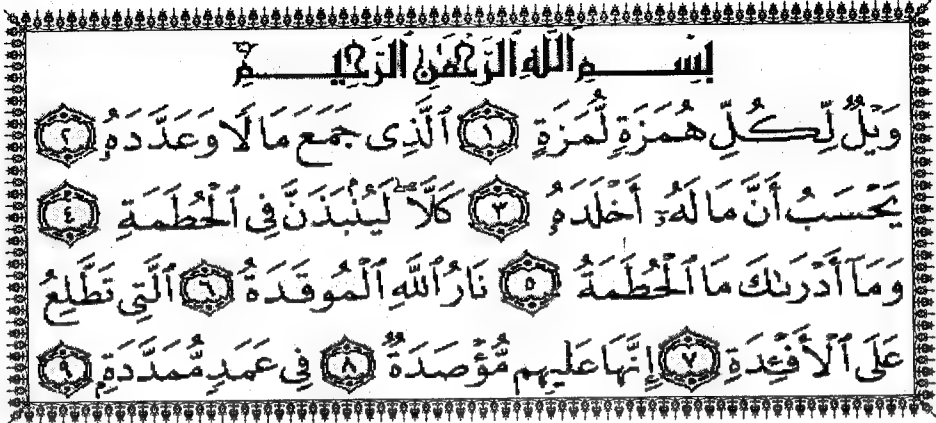 بِسْمِ اللَّهِ الرَّحْمَٰنِ الرَّحِيمِ
وَيْلٌ لِّكُلِّ هُمَزَةٍ لُّمَزَةٍ ١ ٱلَّذِى جَمَعَ مَالًا وَعَدَّدَهُۥ ٢
يَحْسَبُ أَنَّ مَالَهُۥٓ أَخْلَدَهُۥ ٣ كَلَّا ۖ لَيُنۢبَذَنَّ فِى ٱلْحُطَمَةِ ٤
وَمَآ أَدْرَىٰكَ مَا ٱلْحُطَمَةُ ٥ نَارُ ٱللَّهِ ٱلْمُوقَدَةُ ٦ ٱلَّتِى تَطَّلِعُ
عَلَى ٱلْأَفْـِٔدَةِ ٧ إِنَّهَا عَلَيْهِم مُّؤْصَدَةٌ ٨ فِى عَمَدٍ مُّمَدَّدَةٍۭ ٩